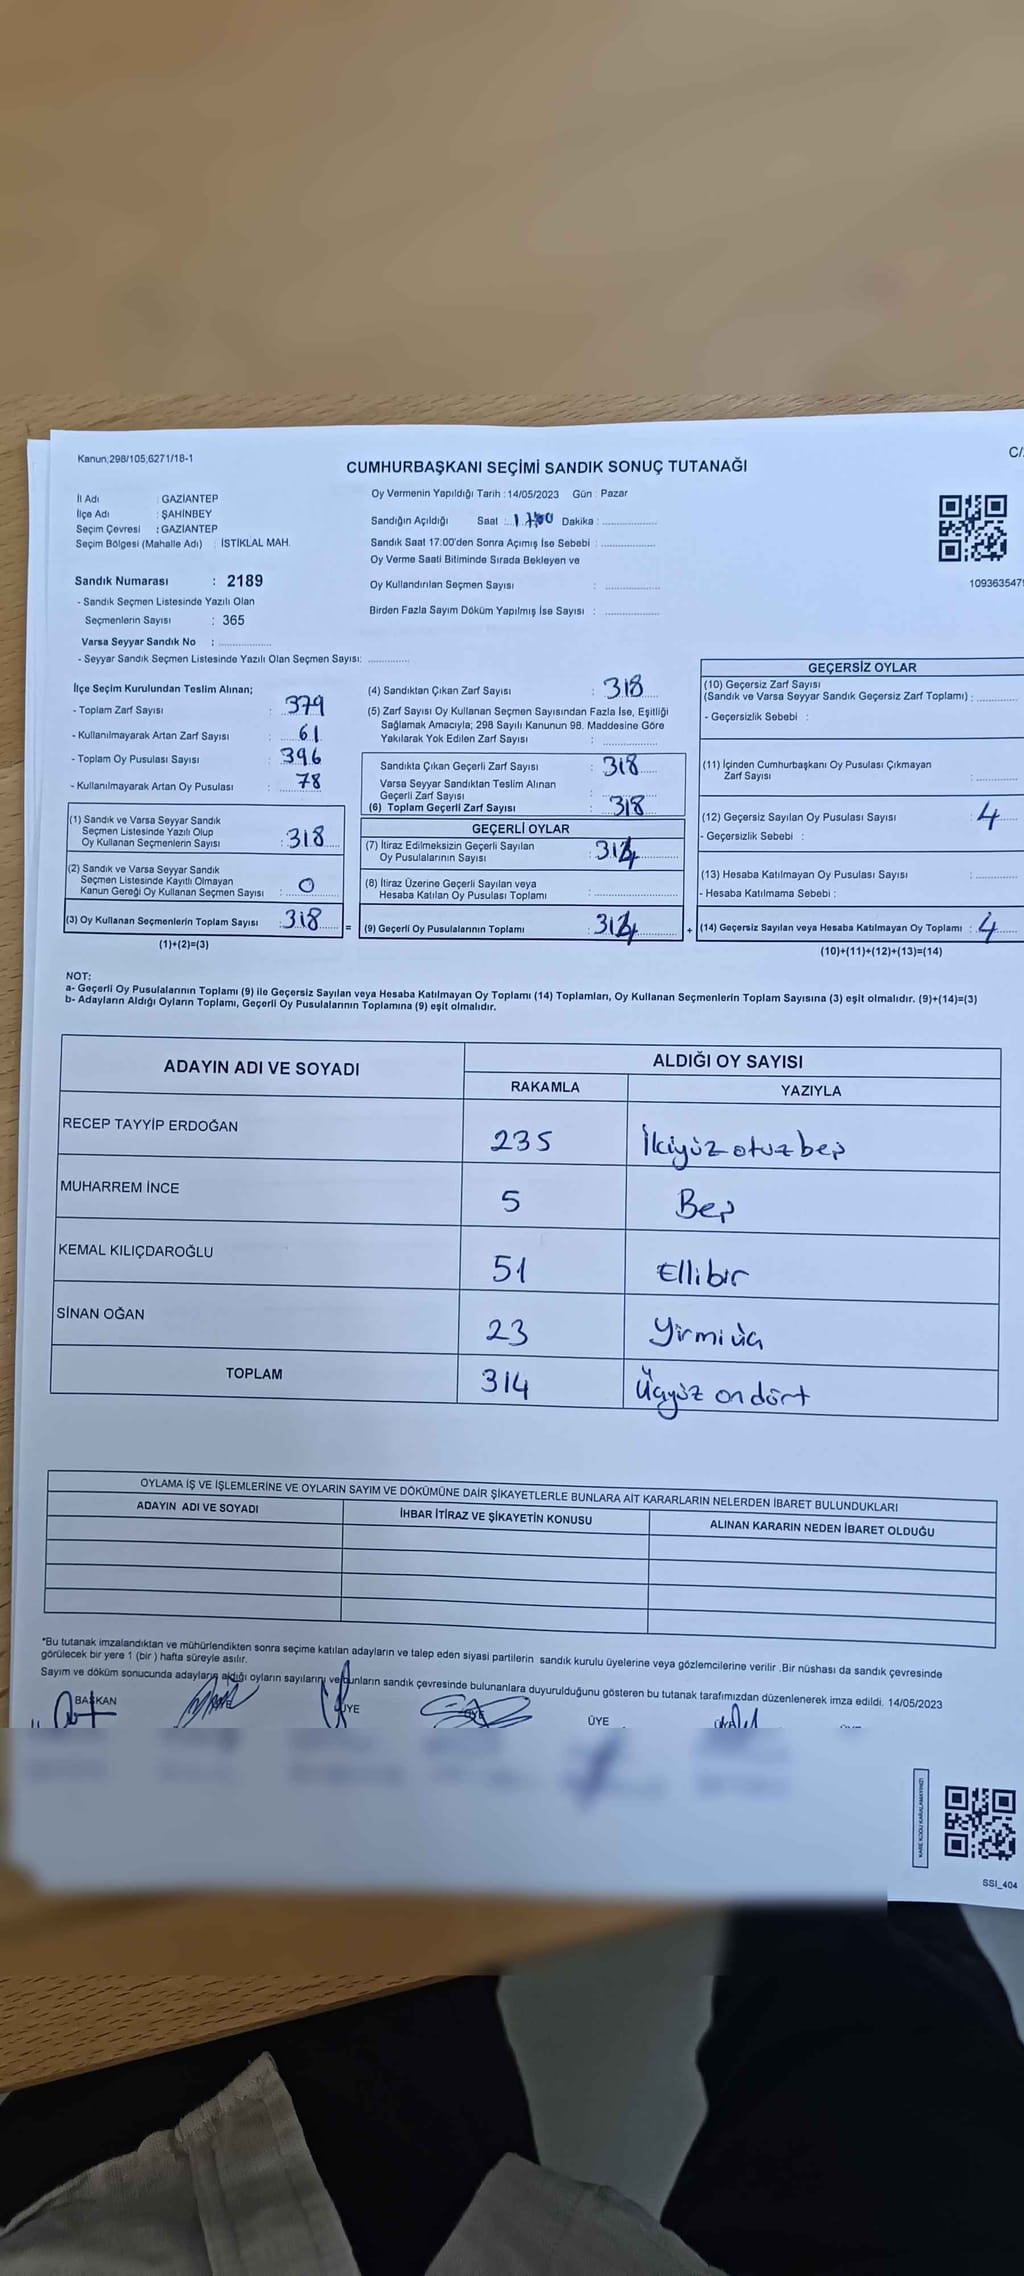 Kanun,298/105,6271/18-1
C/
CUMHURBAŞKANI SEÇİMİ SANDIK SONUÇ TUTANAĞI
İl Adı : GAZİANTEP
İlçe Adı : ŞAHİNBEY
Seçim Çevresi : GAZİANTEP
Seçim Bölgesi (Mahalle Adı) : İSTİKLAL MAH.
Oy Vermenin Yapıldığı Tarih : 14/05/2023 Gün : Pazar
Sandığın Açıldığı Saat : Dakika :
Sandık Saat 17:00'den Sonra Açımış İse Sebebi :
Oy Verme Saati Bitiminde Sırada Bekleyen ve
Oy Kullandırılan Seçmen Sayısı :
Birden Fazla Sayım Döküm Yapılmış İse Sayısı :
109363547
Sandık Numarası : 2189
- Sandık Seçmen Listesinde Yazılı Olan
Seçmenlerin Sayısı : 365
Varsa Seyyar Sandık No :
- Seyyar Sandık Seçmen Listesinde Yazılı Olan Seçmen Sayısı:
İlçe Seçim Kurulundan Teslim Alınan;
- Toplam Zarf Sayısı : 379
- Kullanılmayarak Artan Zarf Sayısı : 61
- Toplam Oy Pusulası Sayısı : 396
- Kullanılmayarak Artan Oy Pusulası : 78
(1) Sandık ve Varsa Seyyar Sandık
Seçmen Listesinde Yazılı Olup
Oy Kullanan Seçmenlerin Sayısı : 318
(2) Sandık ve Varsa Seyyar Sandık
Seçmen Listesinde Kayıtlı Olmayan
Kanun Gereği Oy Kullanan Seçmen Sayısı : 0
(3) Oy Kullanan Seçmenlerin Toplam Sayısı : 318
(1)+(2)=(3)
=
(4) Sandıktan Çıkan Zarf Sayısı : 318
(5) Zarf Sayısı Oy Kullanan Seçmen Sayısından Fazla İse, Eşitliği
Sağlamak Amacıyla; 298 Sayılı Kanunun 98. Maddesine Göre
Yakılarak Yok Edilen Zarf Sayısı :
Sandıkta Çıkan Geçerli Zarf Sayısı : 318
Varsa Seyyar Sandıktan Teslim Alınan
Geçerli Zarf Sayısı :
(6) Toplam Geçerli Zarf Sayısı : 318
GEÇERLİ OYLAR
(7) İtiraz Edilmeksizin Geçerli Sayılan
Oy Pusulalarının Sayısı : 314
(8) İtiraz Üzerine Geçerli Sayılan veya
Hesaba Katılan Oy Pusulası Toplamı :
(9) Geçerli Oy Pusulalarının Toplamı : 314
+
GEÇERSİZ OYLAR
(10) Geçersiz Zarf Sayısı
(Sandık ve Varsa Seyyar Sandık Geçersiz Zarf Toplamı) :
- Geçersizlik Sebebi :
(11) İçinden Cumhurbaşkanı Oy Pusulası Çıkmayan
Zarf Sayısı :
(12) Geçersiz Sayılan Oy Pusulası Sayısı : 4
- Geçersizlik Sebebi :
(13) Hesaba Katılmayan Oy Pusulası Sayısı :
- Hesaba Katılmama Sebebi :
(14) Geçersiz Sayılan veya Hesaba Katılmayan Oy Toplamı : 4
(10)+(11)+(12)+(13)=(14)
NOT:
a- Geçerli Oy Pusulalarının Toplamı (9) ile Geçersiz Sayılan veya Hesaba Katılmayan Oy Toplamı (14) Toplamları, Oy Kullanan Seçmenlerin Toplam Sayısına (3) eşit olmalıdır. (9)+(14)=(3)
b- Adayların Aldığı Oyların Toplamı, Geçerli Oy Pusulalarının Toplamına (9) eşit olmalıdır.
ADAYIN ADI VE SOYADI ALDIĞI OY SAYISI
RAKAMLA YAZIYLA
RECEP TAYYİP ERDOĞAN 235 İkiyüz otuz beş
MUHARREM İNCE 5 Beş
KEMAL KILIÇDAROĞLU 51 Ellibir
SİNAN OĞAN 23 Yirmi üç
TOPLAM 314 Üçyüz on dört
OYLAMA İŞ VE İŞLEMLERİNE VE OYLARIN SAYIM VE DÖKÜMÜNE DAİR ŞİKAYETLERLE BUNLARA AİT KARARLARIN NELERDEN İBARET BULUNDUKLARI
ADAYIN ADI VE SOYADI İHBAR İTİRAZ VE ŞİKAYETİN KONUSU ALINAN KARARIN NEDEN İBARET OLDUĞU
*Bu tutanak imzalandıktan ve mühürlendikten sonra seçime katılan adayların ve talep eden siyasi partilerin sandık kurulu üyelerine veya gözlemcilerine verilir .Bir nüshası da sandık çevresinde
görülecek bir yere 1 (bir ) hafta süreyle asılır.
Sayım ve döküm sonucunda adayların aldığı oyların sayılarını ve bunların sandık çevresinde bulunanlara duyurulduğunu gösteren bu tutanak tarafımızdan düzenlenerek imza edildi. 14/05/2023
BAŞKAN ÜYE ÜYE ÜYE
KARE KODU KARALAMAYINIZ!
SSI_404